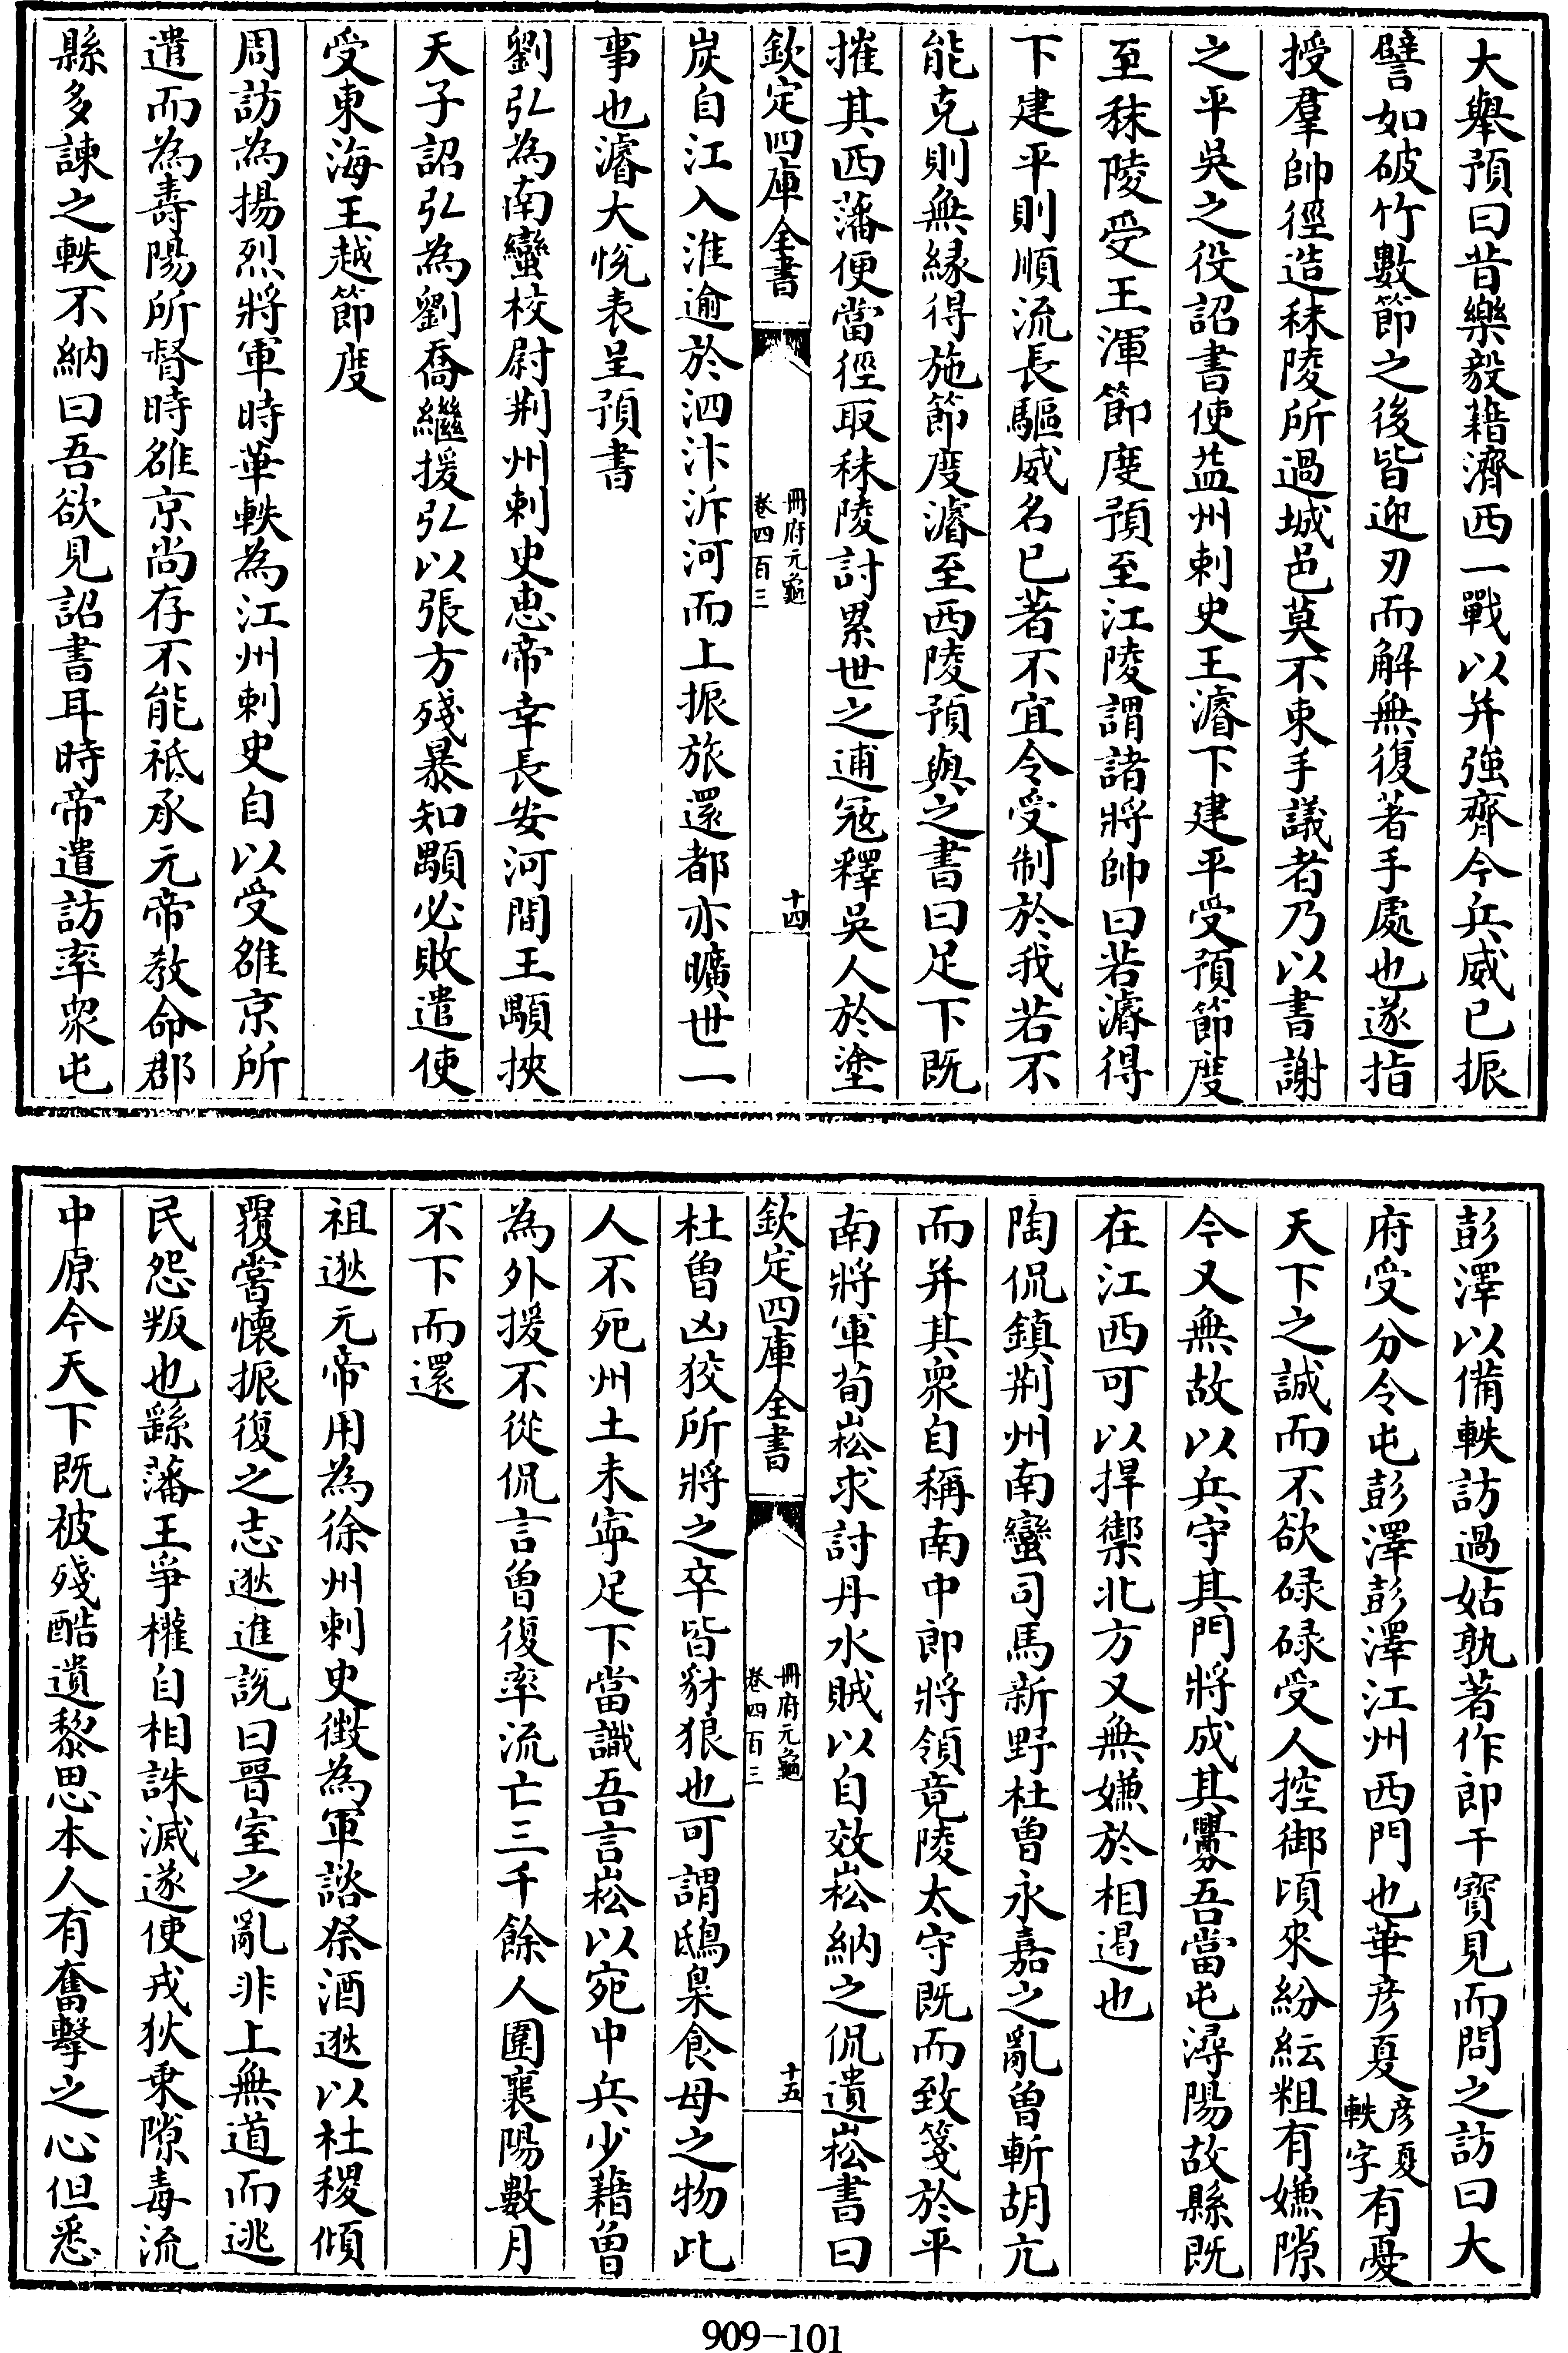 大舉預曰昔樂毅藉濟西一戰以并強齊今兵威已振
譬如破竹數節之後皆迎刃而解無復著手處也遂指
授羣帥徑造秣陵所過城邑莫不束手議者乃以書謝
之平吳之役詔書使益州刺史王濬下建平受預節度
至秣陵受王渾節度預至江陵謂諸將帥曰若濬得
下建平則順流長驅威名已著不宜令受制於我若不
能克則無緣得施節度濬至西陵預與之書曰足下既
摧其西藩便當徑取秣陵討累世之逋寇釋吳人於塗
欽定四庫全書
冊府元龜
卷四百三
十四
炭自江入淮逾於泗汴泝河而上振旅還都亦曠世一
事也濬大悅表呈預書
劉弘為南蠻校尉荆州刺史惠帝幸長安河間王顒挾
天子詔弘為劉喬繼援弘以張方殘暴知顒必敗遣使
受東海王越節度
周訪為揚烈將軍時華軼為江州刺史自以受雒京所
遣而為壽陽所督時雒京尚存不能祗承元帝教命郡
縣多諫之軼不納曰吾欲見詔書耳時帝遣訪率衆屯
彭澤以備軼訪過姑孰著作郎干寳見而問之訪曰大
府受分令屯彭澤彭澤江州西門也華彦夏彦夏軼字有憂
天下之誠而不欲碌碌受人控御頃來紛紜粗有嫌隙
今又無故以兵守其門將成其釁吾當屯潯陽故縣既
在江西可以捍禦北方又無嫌於相逼也
陶侃鎮荆州南蠻司馬新野杜曽永嘉之亂曽斬胡亢
而并其衆自稱南中郎將領竟陵太守既而致箋於平
南將軍荀崧求討丹水賊以自效崧納之侃遺崧書曰
欽定四庫全書
冊府元龜
卷四百三
十五
杜曽凶狡所將之卒皆豺狼也可謂鴟梟食母之物此
人不死州土未寧足下當識吾言崧以宛中兵少藉曽
為外援不從侃言曽復率流亡三千餘人圍襄陽數月
不下而還
祖逖元帝用為徐州刺史徴為軍諮祭酒逖以社稷傾
覆嘗懷振復之志逖進説曰晉室之亂非上無道而逃
民怨叛也繇藩王爭權自相誅滅遂使戎狄乗隙毒流
中原今天下既被殘酷遺黎思本人有奮擊之心但悉
909-101